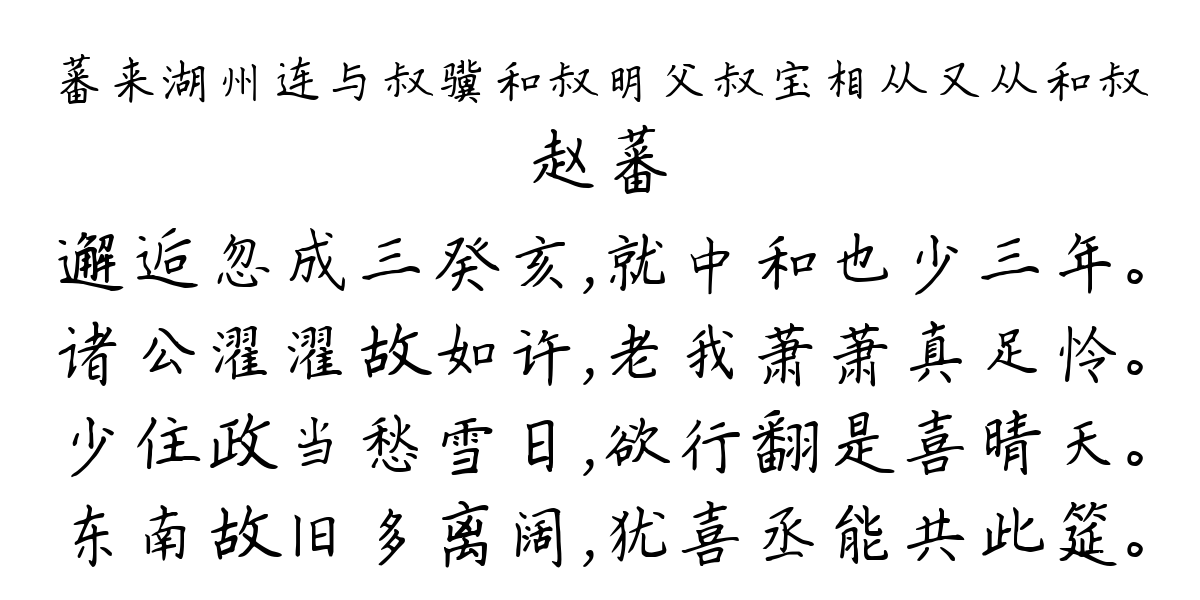 蕃来湖州连与叔骥和叔明父叔宝相从又从和叔
赵蕃
邂逅忽成三癸亥,就中和也少三年。
诸公濯濯故如许,老我萧萧真足怜。
少住政当愁雪日,欲行翻是喜晴天。
东南故旧多离阔,犹喜丞能共此筵。